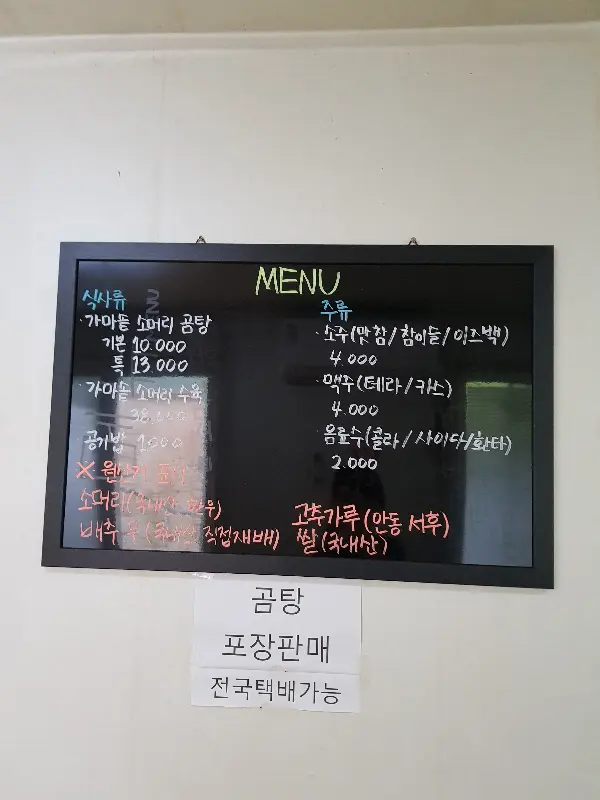 MENU
식사류
·가마솥 소머리 곰탕
기본 10.000
특 13.000
·가마솥 소머리 수육
38.000
·공기밥 1000
× 원산지 표시
소머리(국내산 한우)
배추 무 (국내산 직접재배)
주류
·소주(맛참/참이슬/이즈백)
4.000
·맥주(테라/카스)
4.000
·음료수(콜라/사이다/환타)
2.000
고추가루(안동 서후)
쌀(국내산)
곰탕
포장판매
전국택배가능